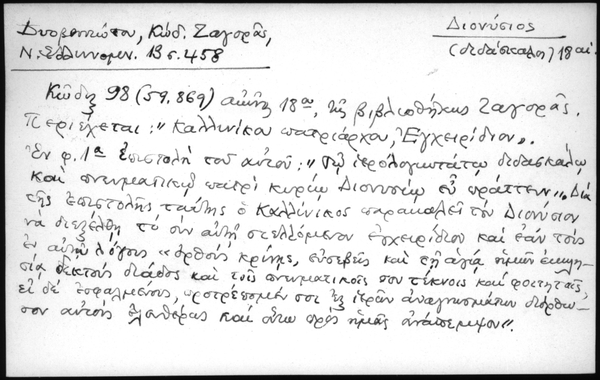 Δυοβουνιώτου, Κώδ. Ζαγορᾶς,
Ν. Ἑλληνομν. 13 σ. 458
Διονύσιος
(διδάσκαλος) 18 αἰ.
Κῶδιξ 98 (59. 869) αἰῶνος 18ου, τῆς βιβλιοθήκης Ζαγορᾶς.
Περιέχεται: "Καλλινίκου πατριάρχου, Ἐγχειρίδιον".
Ἐν φ. 1α ἐπιστολὴ τοῦ αὐτοῦ: "Τῷ ἱερολογιωτάτῳ διδασκάλῳ
καὶ πνευματικῷ πατρὶ κυρίῳ Διονυσίῳ εὖ πράττειν". Διὰ
τῆς ἐπιστολῆς ταύτης ὁ Καλλίνικος παρακαλεῖ τὸν Διονύσιον
νὰ διεξέλθῃ τὸ σὺν αὐτῇ στελλόμενον ἐγχειρίδιον καὶ ἐὰν τοὺς
ἐν αὐτῷ λόγους "ὀρθοὺς κρίνῃς, εὐσεβεῖς καὶ τῇ ἁγίᾳ ἡμῶν ἐκκλη-
σίᾳ δεκτοὺς διάδος καὶ τοῖς πνευματικοῖς σου τέκνοις καὶ φοιτηταῖς,
εἰ δὲ ἐσφαλμένους, προτρέπομέν σοι ἐξ ἱερῶν ἀναγνωσμάτων διόρθω-
σον αὐτοὺς ἐλευθέρως καὶ οὕτω πρὸς ἡμᾶς ἀνάπεμψον".